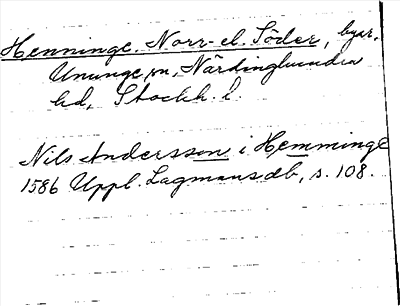 Henninge. Norr- el. Söder, byar.
Ununge sn, Närdinghundra
hd, Stockh. l.
Nils Andersson i Hemminge
1586 Uppl. Lagmansdb, s. 108.